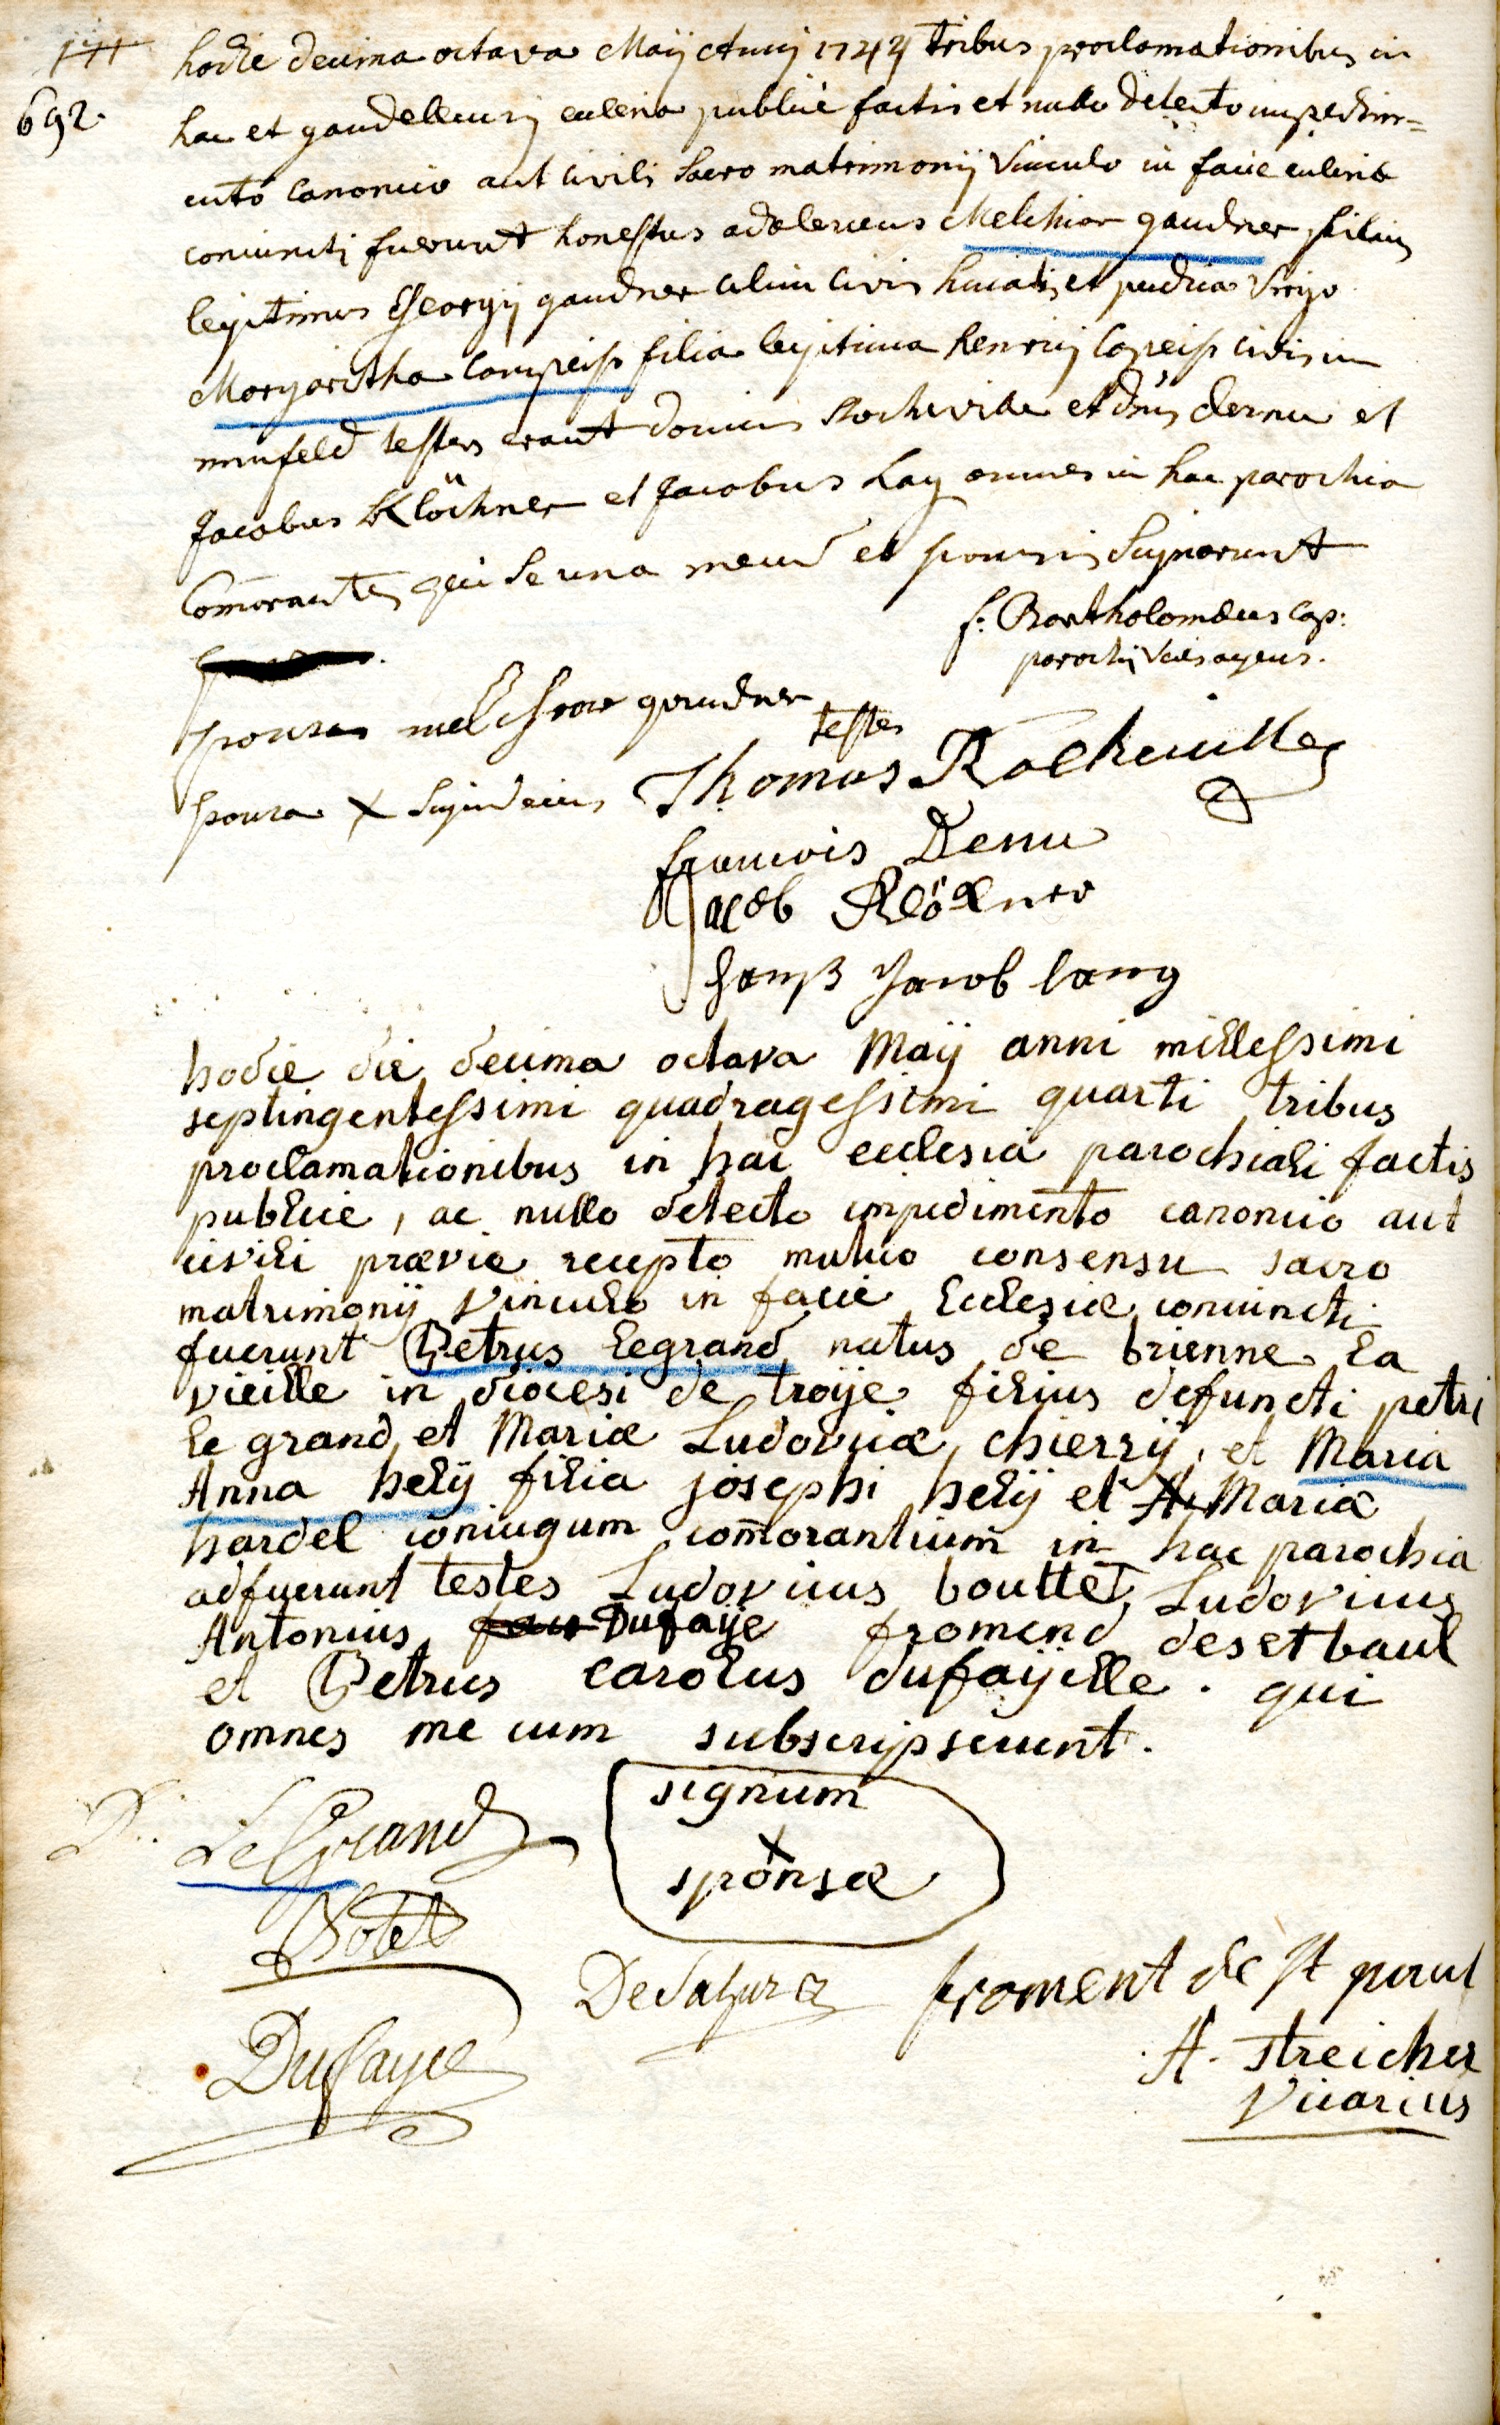 692.
hodie decima octava Maij Anni 1744 tribus proclamationibus in
hac et gaudellensi ecclesia publice factis et nullo detecto impedim=
ento canonico aut civili Sacro matrimonij Vinculo in facie ecclesiæ
coniuncti fuerunt honestus adolescens Melchior gaudner filius
legitimus Georgij gaudner olim civis huiatis et pudica Virgo
Margaritha Campeiß filia legitima henrici Capeiß civis in
minfeld testes erant dominus Rocheville et dnus dernu et
Jacobus Klöchner et Jacobus Lay omnes in hac parochia
Comorantes qui se una mecum et sponsis Signarunt
f: Bartholomæus Cap:
parochi Vices agens.
sponsus melchior gaudner
testes
sponsa x Signum eius Thomas Rocheville
francois Denu
Jacob Klöckner
Hanß Jacob lang
hodie die decima octava Maij anni millessimi
septingentessimi quadragessimi quarti tribus
proclamationibus in hac ecclesia parochiali factis
publice, ac nullo detecto impedimento canonico aut
civili prævie recepto mutuo consensu sacro
matrimonij Vinculo in facie Ecclesiæ coniuncti
fuerunt Petrus legrand natus de brienne la
vieille in diocesi de troije filius defuncti petri
le grand et Mariæ Ludovicæ chierrij, et Maria
Anna helij filia josephi helij et A. Mariæ
hardel coniugum comorantium in hac parochia
adfuerunt testes Ludovicus bouttet, Ludovicus
Antonius Dufaije fromend desetbaul
et Petrus carolus dufaijelle. qui
omnes me cum subscripserunt.
LeGrand
signum
x
sponsæ
froment de st paul
Dufaye
A. streicher
Vicarius